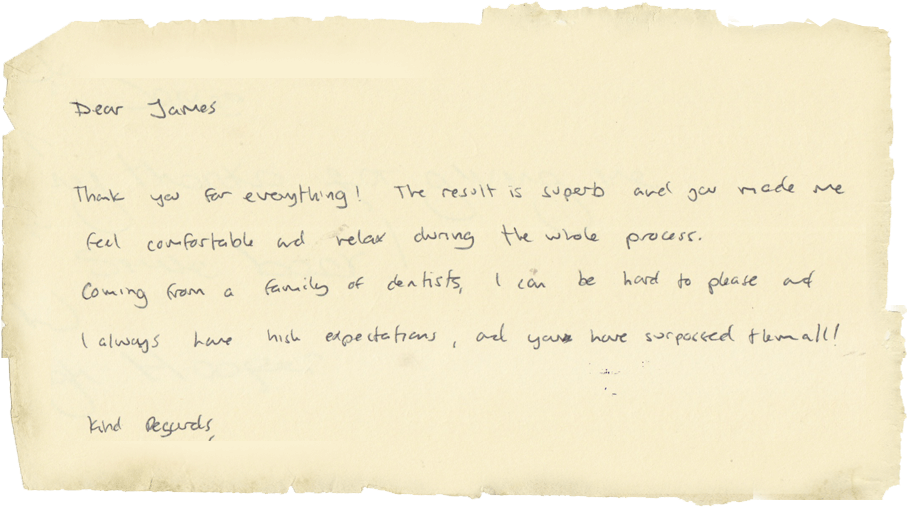 Dear James
Thank you for everything! The result is superb and you made me
feel comfortable and relax during the whole process.
Coming from a family of dentists, I can be hard to please and
I always have high expectations, and you have surpassed them all!
Kind Regards,